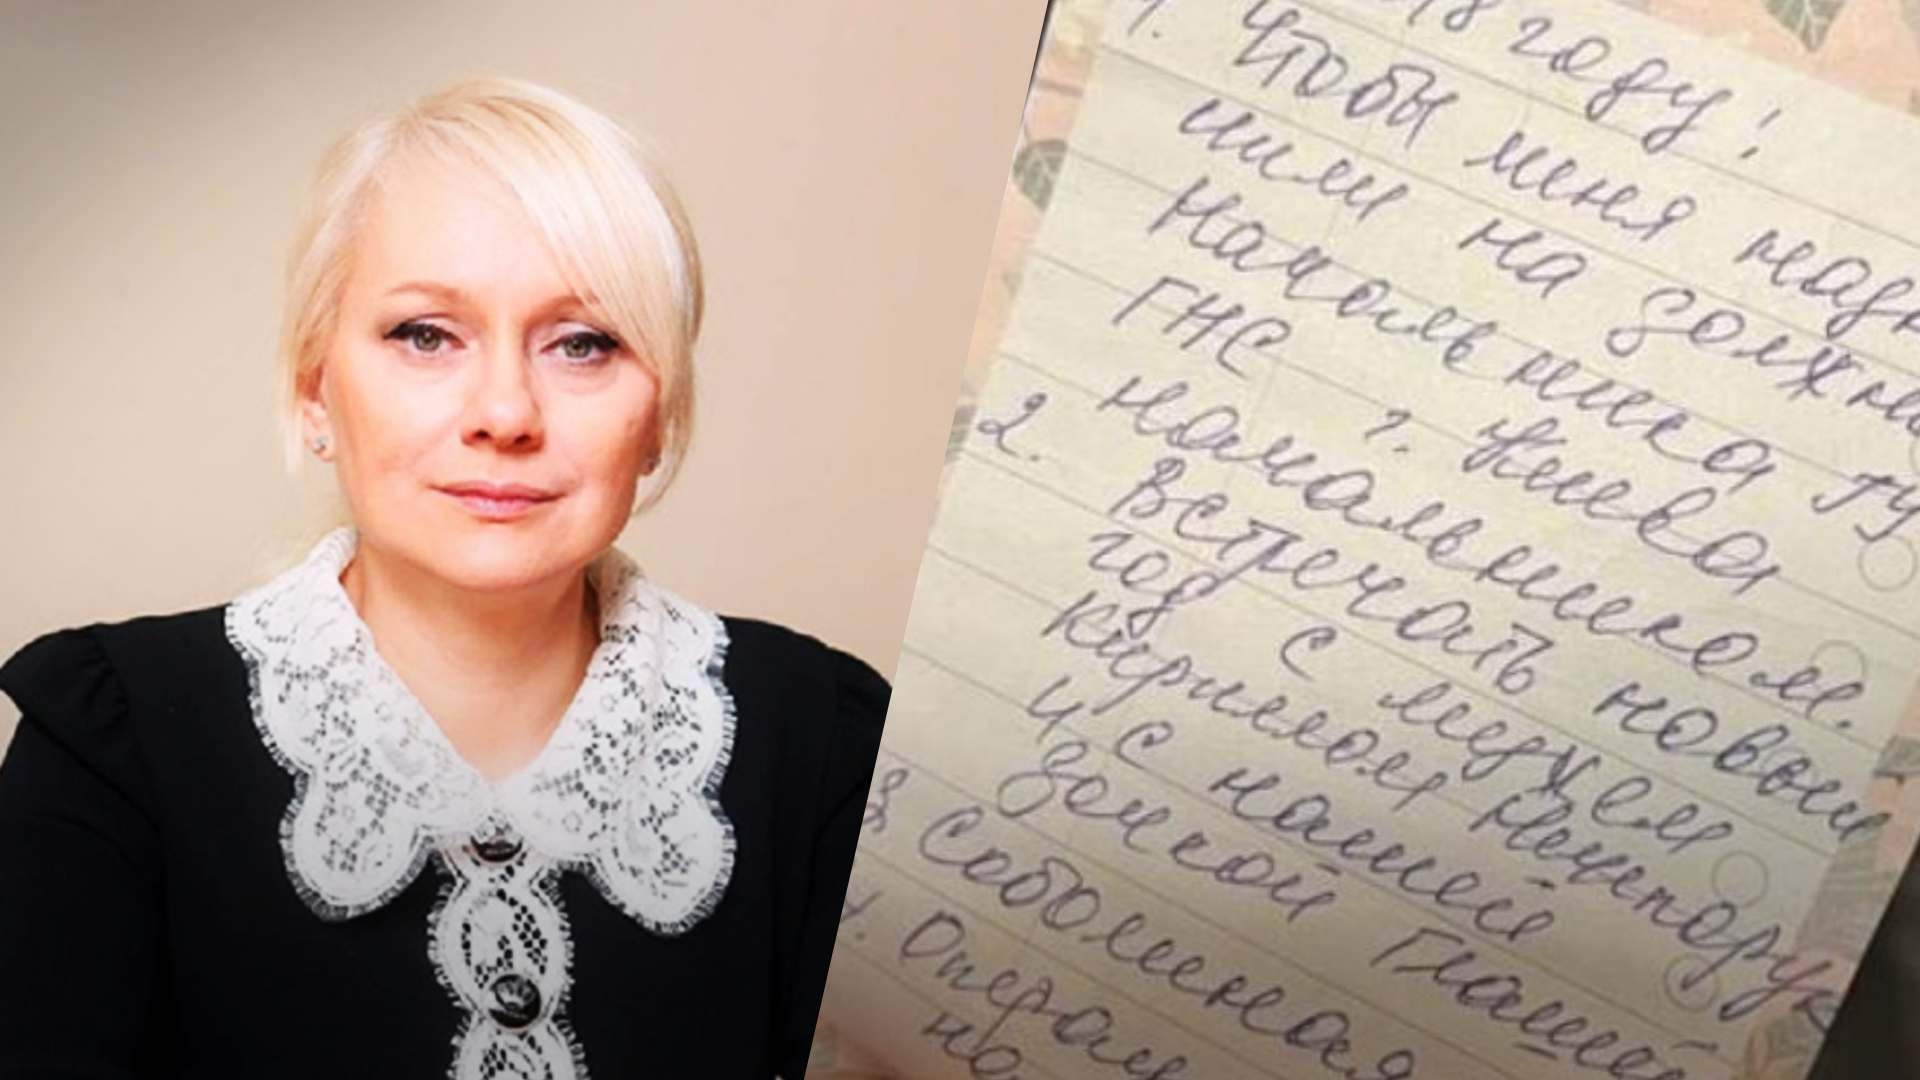 18 году!
1. Чтобы меня назн
чили на должно
начальника ГУ
ГНС г. Киева
начальником.
2. Встречать новый
год с мужем
Кириллом Нечипорук
и с нашей
дочкой Глашей
3. Соболиная
4. Операц
но